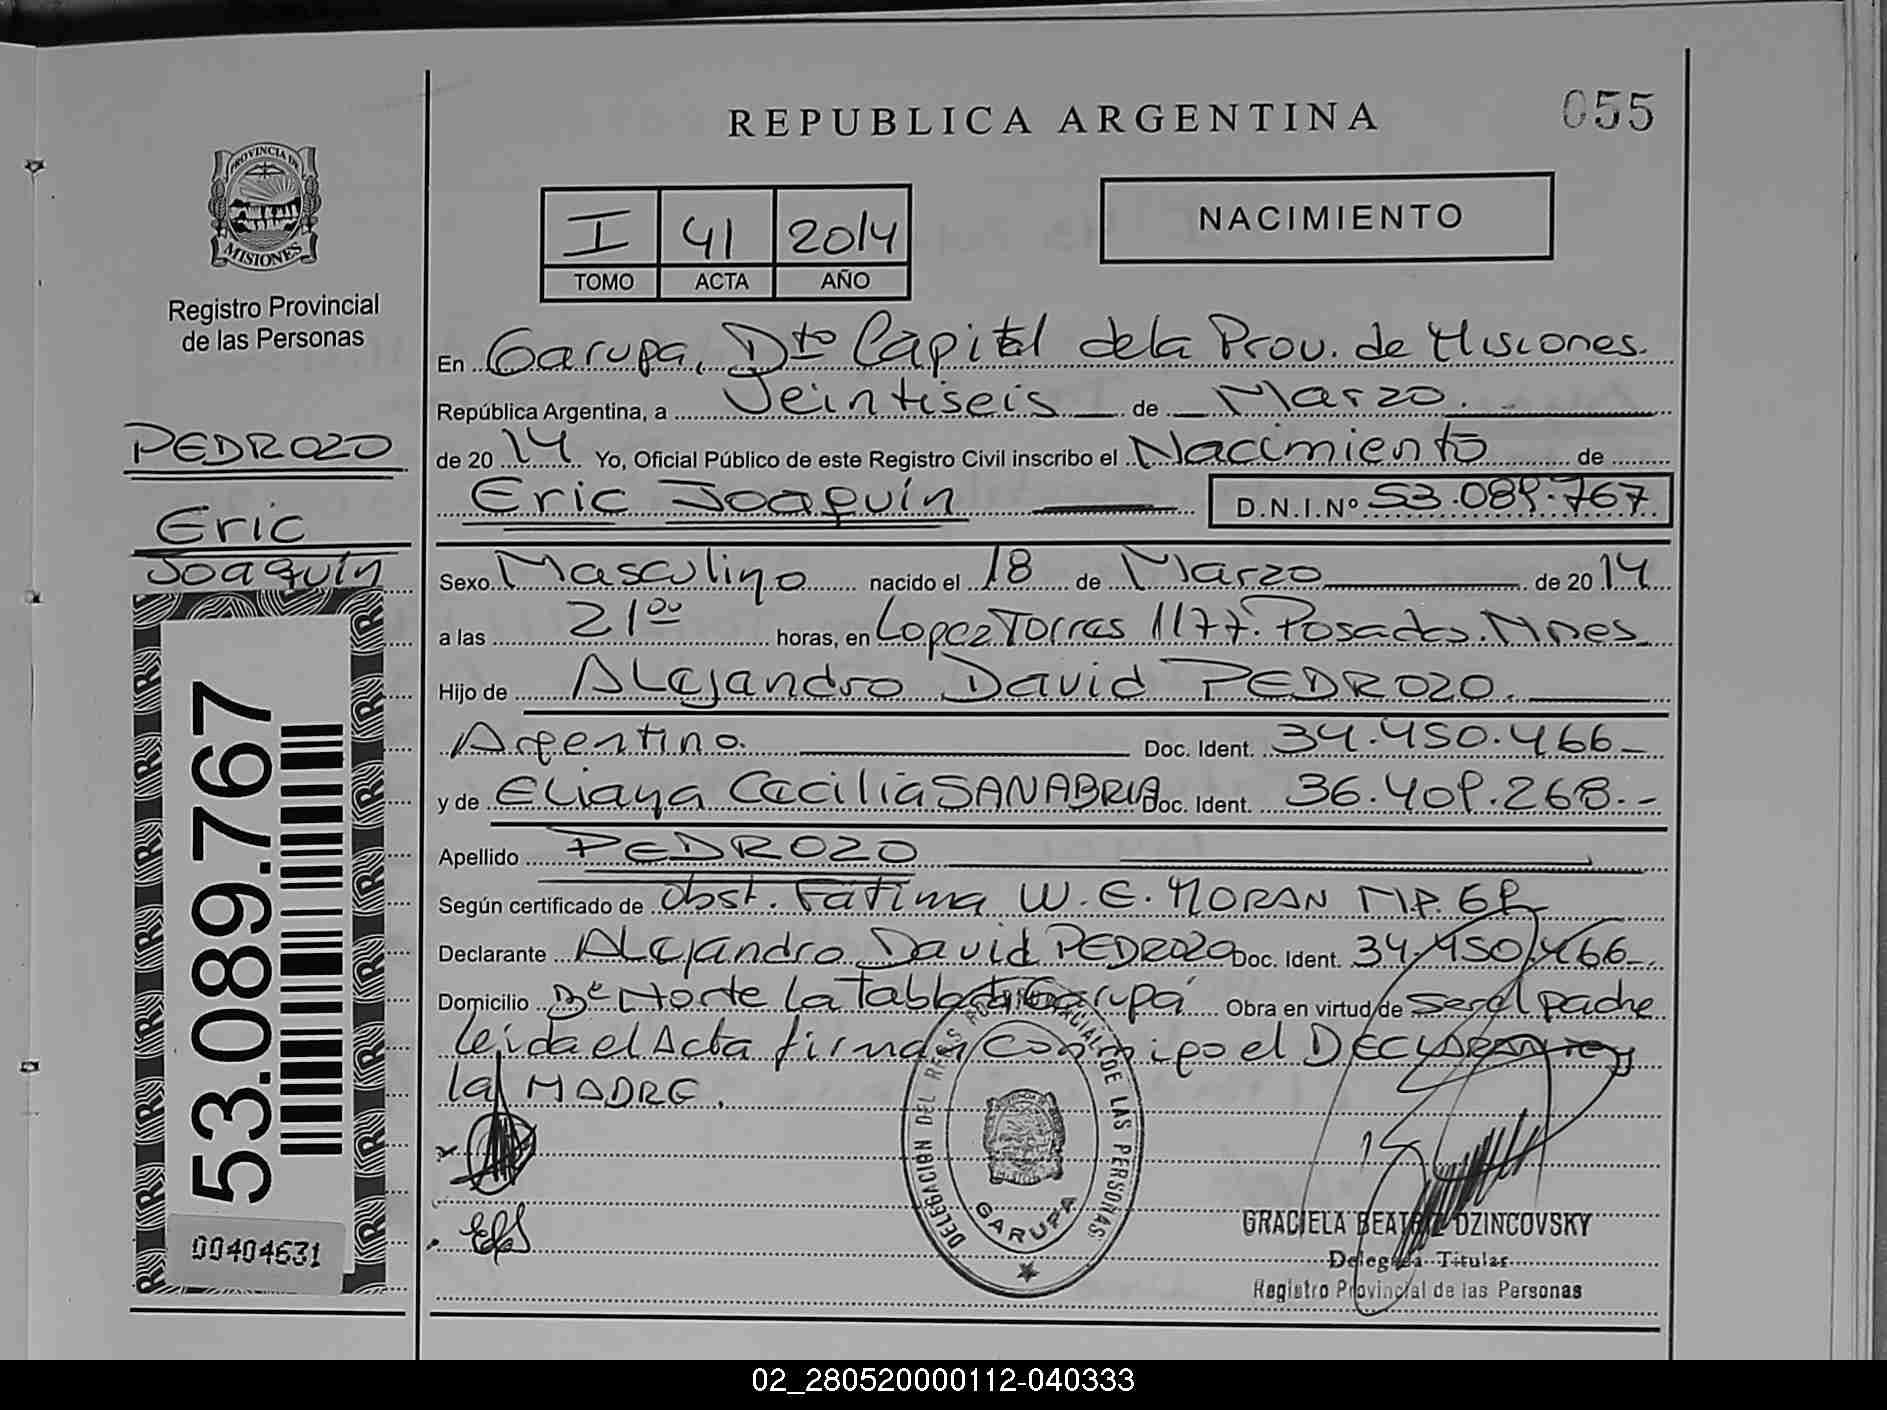 REPUBLICA ARGENTINA
055
PROVINCIA DE
MISIONES
Registro Provincial
de las Personas
I 41 2014
TOMO ACTA AÑO
NACIMIENTO
En Garupa, Dto Capital de la Prov. de Misiones.
República Argentina, a Veintiseis de Marzo.
de 20 14 Yo, Oficial Público de este Registro Civil inscribo el Nacimiento de
Eric Joaquín D.N.I.Nº 53.089.767
PEDROZO
Eric
Joaquín
Sexo Masculino nacido el 18 de Marzo de 20 14
a las 21⁰⁰ horas, en Lopez Torres 1177. Posadas. Mnes
Hijo de Alejandro David PEDROZO.
Argentino. Doc. Ident. 34.450.466
y de Eliana Cecilia SANABRIA Doc. Ident. 36.409.268.-
Apellido PEDROZO
Según certificado de Obst. Fatima W. E. MORAN MP. 69
Declarante Alejandro David PEDROZO Doc. Ident. 34.450.466
Domicilio Bº Norte La Tablada Garupá Obra en virtud de ser el padre
leida el Acta firman conmigo el DECLARANTE y
la MADRE.
53.089.767
00404631
DELEGACION DEL REG. PROVINCIAL DE LAS PERSONAS
GARUPA
GRACIELA BEATRIZ DZINCOVSKY
Delegada Titular
Registro Provincial de las Personas
02_280520000112-040333